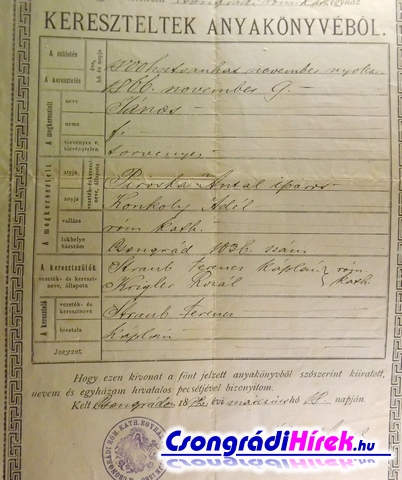 KERESZTELTEK ANYAKÖNYVÉBŐL.
A születés
év, hó és napja
november nyolcz
A keresztelés
1866. november 9.
A megkeresztelt
neve
János
neme
f.
törvényes v. törvénytelen
törvényes
A megkeresztelt
atyja
vezeték- és keresztneve, állapota
Piroska Antal iparos
anyja
Konkoly Adél
vallása
róm. kath.
lakhelye házszám
Csongrád 1036. szám
A keresztszülők
vezeték- és keresztneve, állapota
Straub Ferencz káplán
róm. kath.
Krigler Rozál
A keresztelő
vezeték- és keresztneve
Straub Ferencz
hivatala
káplán
Jegyzet
Hogy ezen kivonat a fönt jelzett anyakönyvből szószerint kiiratott,
nevem és egyházam hivatalos pecsétjével bizonyítom.
Kelt Csongrádon 18 évi hó napján.
CsongrádiHírek.hu